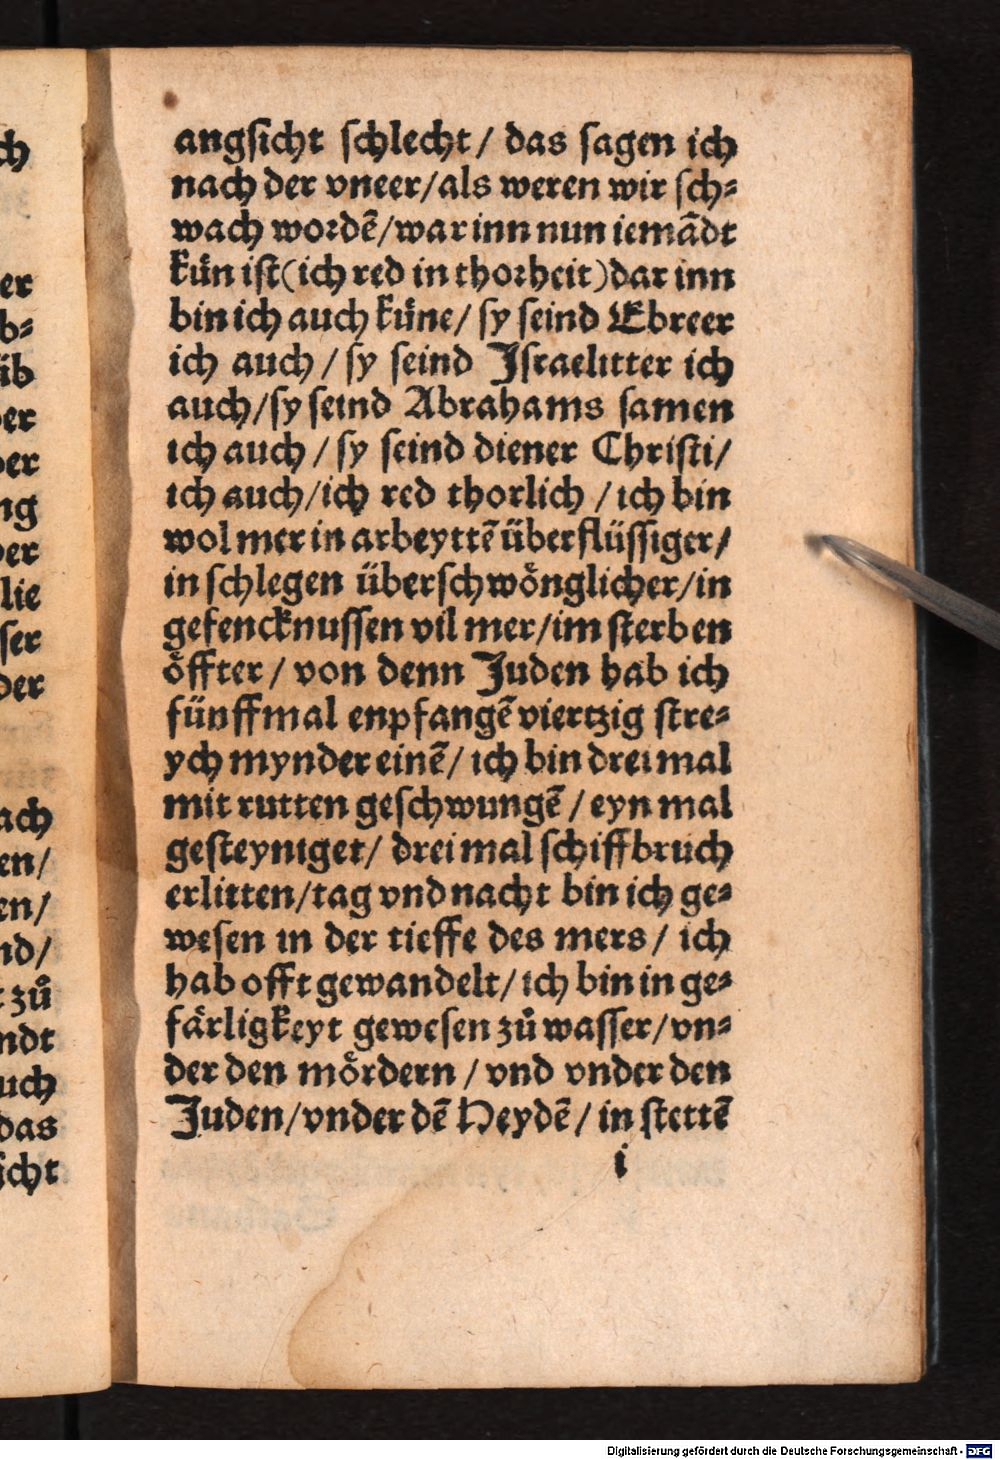 angsicht schlecht / das sagen ich
nach der vneer / als weren wir sch⸗
wach wordẽ / war inn nun iemãdt
kuͤn ist (ich red in thorheit) dar inn
bin ich auch kuͤne / sy seind Ebreer
ich auch / sy seind Israelitter ich
auch / sy seind Abrahams samen
ich auch / sy seind diener Christi /
ich auch / ich red thorlich / ich bin
wol mer in arbeyttẽ überflüssiger /
in schlegen überschwoͤnglicher / in
gefencknussen vil mer / im sterben
oͤffter / von denn Juden hab ich
fünffmal enpfangẽ viertzig stre⸗
ych mynder einẽ / ich bin drei mal
mit rutten geschwungẽ / eyn mal
gesteyniget / drei mal schiffbruch
erlitten / tag vnd nacht bin ich ge⸗
wesen in der tieffe des mers / ich
hab offt gewandelt / ich bin in ge⸗
faͤrligkeyt gewesen zuͦ wasser / vn⸗
der den moͤrdern / vnd vnder den
Juden / vnder dẽ Heydẽ / in stettẽ
i
ch
er
b⸗
üb
er
er
ng
er
lie
ser
der
ach
en /
en /
nd /
t zuͦ
ndt
uch
das
icht
Digitalisierung gefördert durch die Deutsche Forschungsgemeinschaft - DFG